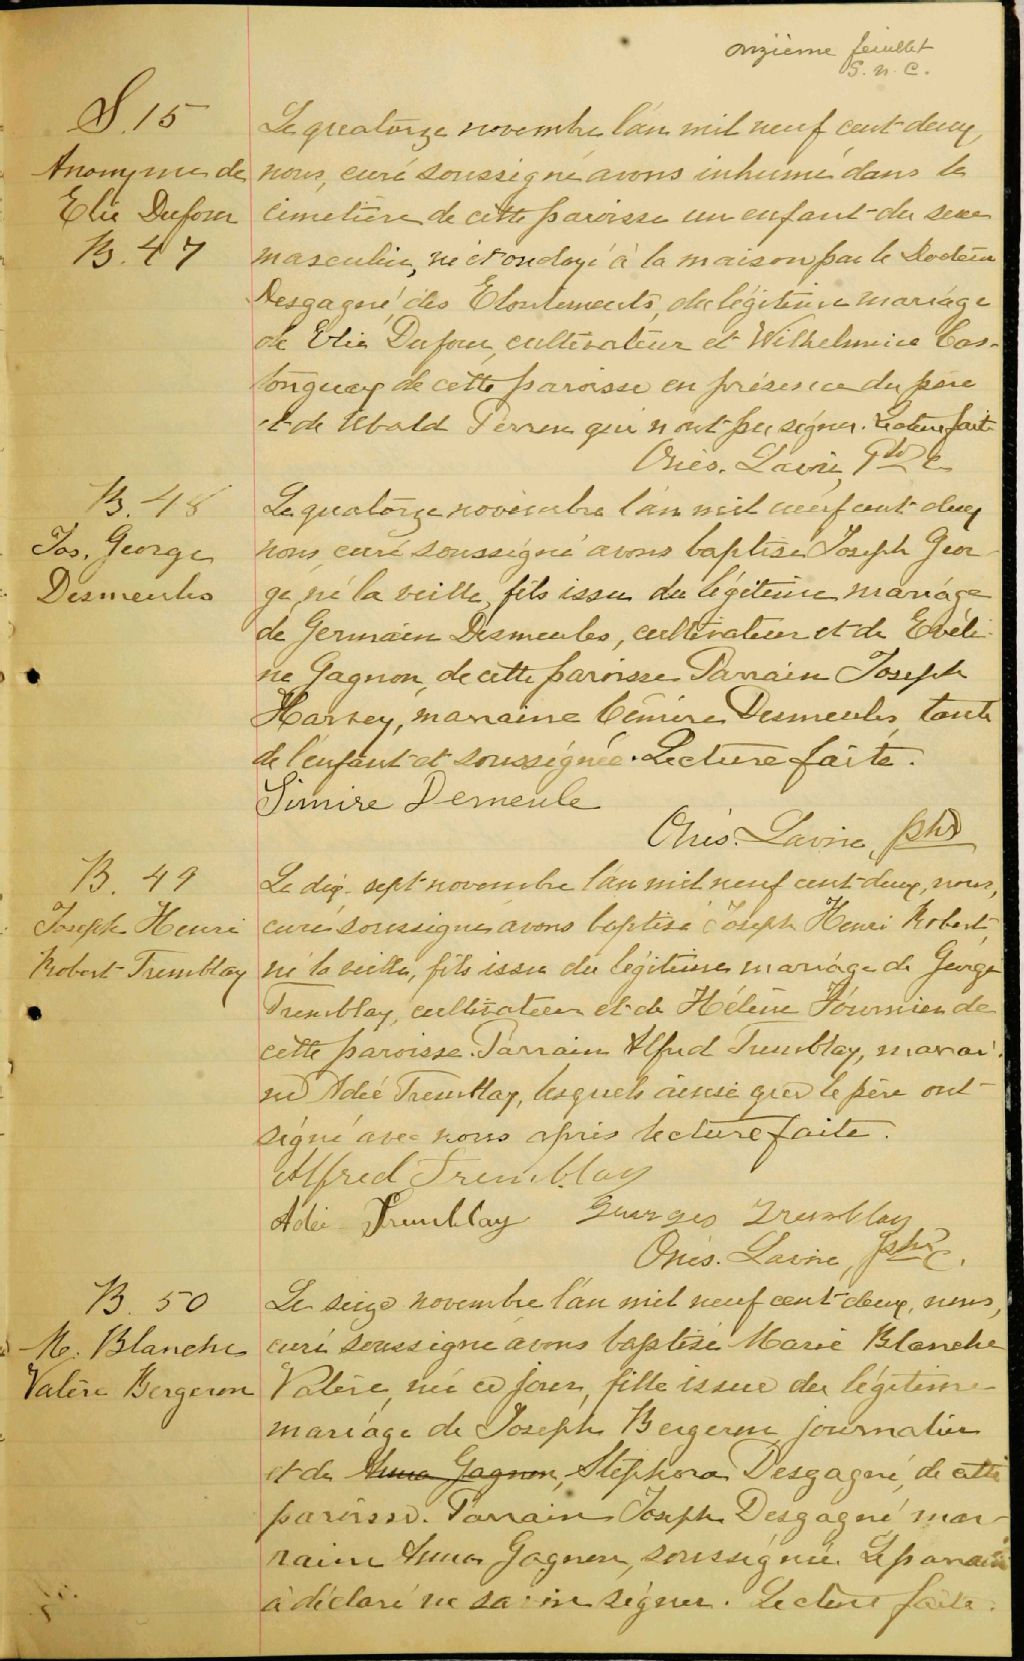 onzième feuillet
G. N. C.
S. 15
Anonyme de
Elie Dufour
B. 47
Le quatorze novembre l'an mil neuf cent deux,
nous, curé soussigné avons inhumé dans le
cimetière de cette paroisse un enfant du sexe
masculin, né et ondoyé à la maison par le Docteur
Desgagné des Eboulements, du légitime mariage
de Elie Dufour, cultivateur et Wilhelmine Cas-
tonguay de cette paroisse en présence du père
et de Ubald Perron qui n'ont pu signer. Lecture faite
Onés. Lavoie, Ptre C
B. 48
Jos. George
Desmeules
Le quatorze novembre l'an mil neuf cent deux
nous, curé soussigné avons baptisé Joseph Geor-
ge, né la veille, fils issu du légitime mariage
de Germain Desmeules, cultivateur et de Evéli-
ne Gagnon, de cette paroisse Parrain Joseph
Harvey, marraine Cémire Desmeules, tante
de l'enfant et soussignée. Lecture faite.
Simire Demeule
Onés. Lavoie, ptre
B. 49
Joseph Henri
Robert Tremblay
Le dix-sept novembre l'an mil neuf cent deux, nous,
curé soussigné avons baptisé Joseph Henri Robert,
né la veille, fils issu du légitime mariage de George
Tremblay, cultivateur et de Hélène Fournier de
cette paroisse. Parrain Alfred Tremblay, marrai-
ne Adée Tremblay, lesquels ainsi que le père ont
signé avec nous après lecture faite.
Alfred Tremblay
Adée Tremblay Georges Tremblay
Onés. Lavoie, ptre C.
B. 50
M. Blanche
Valére Bergeron
Le seize novembre l'an mil neuf cent deux, nous,
curé soussigné avons baptisé Marie Blanche
Valére, née ce jour, fille issue du légitime
mariage de Joseph Bergeron journalier
et de Anna Gagnon, Stéphora Desgagné, de cette
paroisse. Parrain Joseph Desgagné mar-
raine Anna Gagnon, soussignée. Le parrain
a déclaré ne savoir signer. Lecture faite.